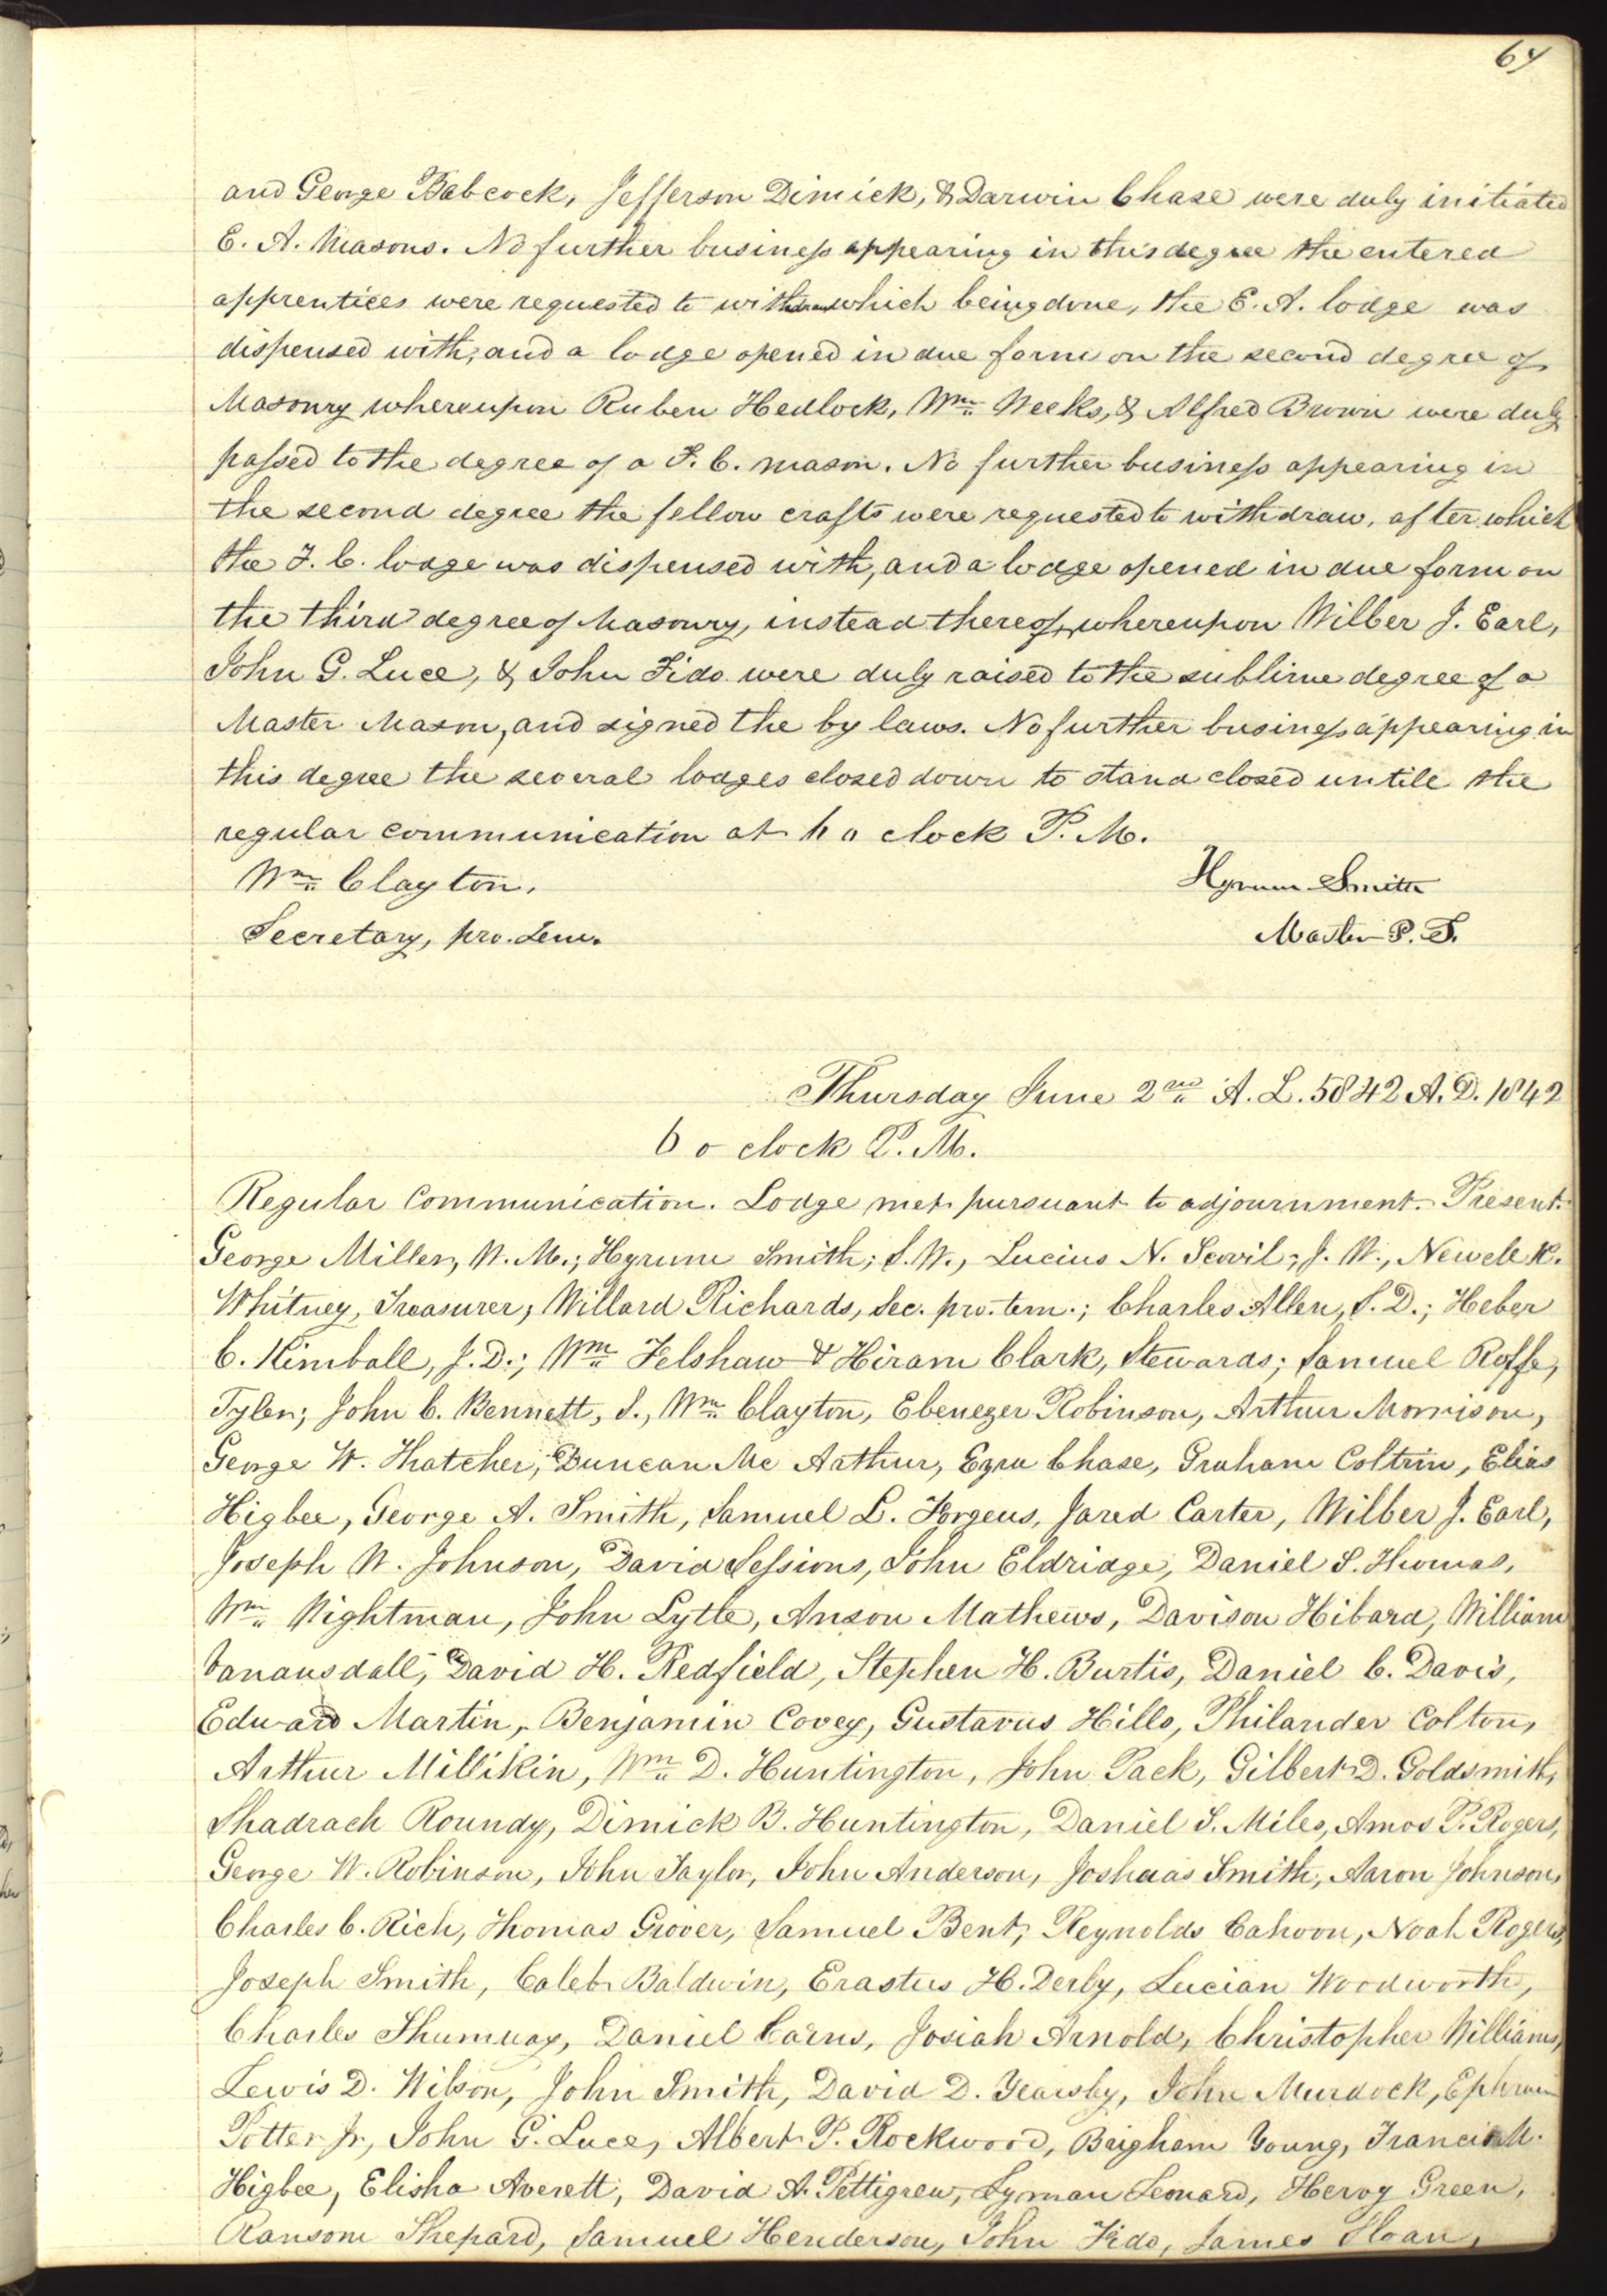 64
and George Babcock, Jefferson Dimick, & Darwin Chase were duly initiated
E. A. Masons. No further business appearing in this degree the entered
apprentices were requested to withdraw which being done, the E. A. lodge was
dispensed with, and a lodge opened in due form on the second degree of
Masonry whereupon Ruben Hedlock, Wm Weeks, & Alfred Brown were duly
passed to the degree of a F. C. mason. No further business appearing in
the second degree the fellow crafts were requested to withdraw, after which
the F. C. lodge was dispensed with, and a lodge opened in due form on
the third degree of Masonry, instead thereof, whereupon Wilber J. Earl,
John G. Luce, & John Fido were duly raised to the sublime degree of a
Master Mason, and signed the by laws. No further business appearing in
this degree the several lodges closed down to stand closed untile the
regular communication at 6 o clock P. M.
Wm Clayton, Hyrum Smith
Secretary, pro. tem. Master P. T.
Thursday June 2nd A. L. 5842 A. D. 1842
6 o clock P. M.
Regular Communication. Lodge met pursuant to adjournment. Present.
George Miller, W. M.; Hyrum Smith; S. W., Lucius N. Scovil; J. W., Newell K.
Whitney, Treasurer; Willard Richards, Sec. pro. tem.; Charles Allen, S. D.; Heber
C. Kimball, J. D.; Wm Felshaw & Hiram Clark, Stewards; Samuel Rolfe,
Tyler; John C. Bennett, S., Wm Clayton, Ebenezer Robinson, Arthur Morrison,
George W. Thatcher, Duncan Mc Arthur, Ezra Chase, Graham Coltrin, Elias
Higbee, George A. Smith, Samuel L. Forgeus, Jared Carter, Wilber J. Earl,
Joseph W. Johnson, David Sessions, John Eldridge, Daniel S. Thomas,
Wm Wightman, John Lytle, Anson Mathews, Davison Hibard, William
Vanausdall, David H. Redfield, Stephen H. Burtis, Daniel C. Davis,
Edward Martin, Benjamin Covey, Gustavus Hills, Philander Colton,
Arthur Millikin, Wm D. Huntington, John Pack, Gilbert D. Goldsmith,
Shadrach Roundy, Dimick B. Huntington, Daniel S. Miles, Amos P. Rogers,
George W. Robinson, John Taylor, John Anderson, Joshuas Smith, Aaron Johnson,
Charles C. Rich, Thomas Grover, Samuel Bent, Reynolds Cahoon, Noah Rogers,
Joseph Smith, Caleb Baldwin, Erastus H. Derby, Lucian Woodworth,
Charles Shumway, Daniel Cairns, Josiah Arnold, Christopher Williams,
Lewis D. Wilson, John Smith, David D. Yearsley, John Murdock, Ephraim
Potter Jr, John G. Luce, Albert P. Rockwood, Brigham Young, Francis M.
Higbee, Elisha Averett, David A. Pettigrew, Lyman Leonard, Hervy Green,
Ransom Shepard, Samuel Henderson, John Fido, James Sloan,